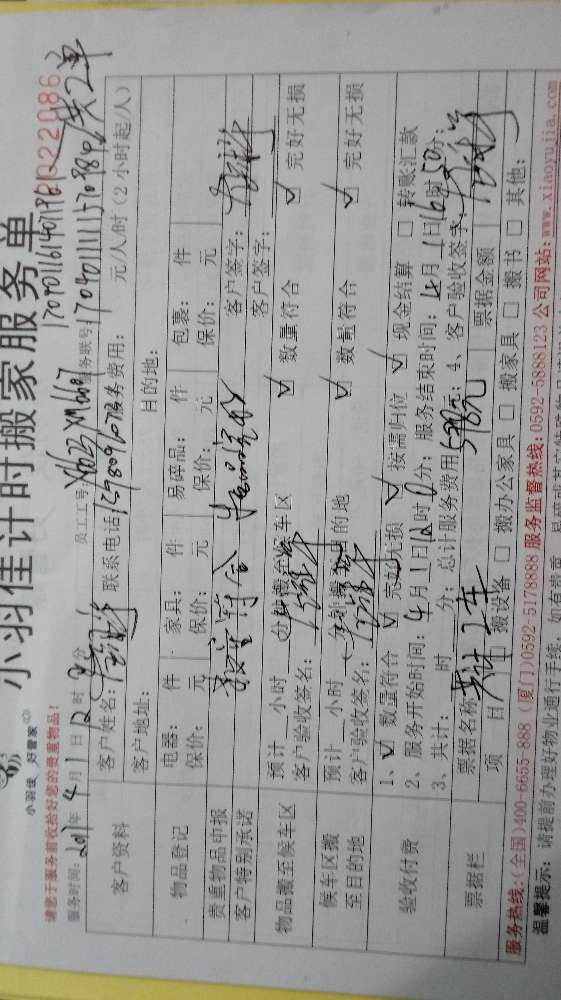 小羽佳 好管家
小羽佳计时搬家服务单
0022086
请您于服务前收拾好您的贵重物品！
服务时间：2017年4月1日12时0分 员工工号 服务联号：
客户资料
客户姓名： 联系电话 服务费用： 元/人/时（2小时起/人）
客户地址： 目的地：
物品登记
电器： 件 家具： 件 易碎品： 件 包裹： 件
贵重物品申报
保价： 元 保价： 元 保价： 元 保价： 元
客户特别承诺
数量符合 客户签字：
客户签字：
物品搬至候车区
预计 小时 分钟搬至候车区 ☑ 数量符合 ☑ 完好无损
客户验收签名：
候车区搬至目的地
预计 小时 分钟搬 目的地 ☑ 数量符合 ☑ 完好无损
客户验收签名：
验收付费
1、☑ 数量符合 ☑ 完好无损 ☑ 按需归位 ☑ 现金结算 □ 转账汇款
2、服务开始时间：4月1日12时0分；服务结束时间：4月1日16时50分；
3、共计： 时 分；总计服务费用 538元；4、客户验收签字：
票据栏
票据名称 票据金额
项 目 □ 搬设备 □ 搬办公家具 □ 搬家具 □ 搬书 □ 其他：
服务热线：（全国）400-6655-888（厦门）0592-5178888 服务监督热线：0592-5888123 公司网站：www.xiaoyujia.com
温馨提示：请提前办理好物业通行手续，如有贵重、易碎或其它特殊物品请提